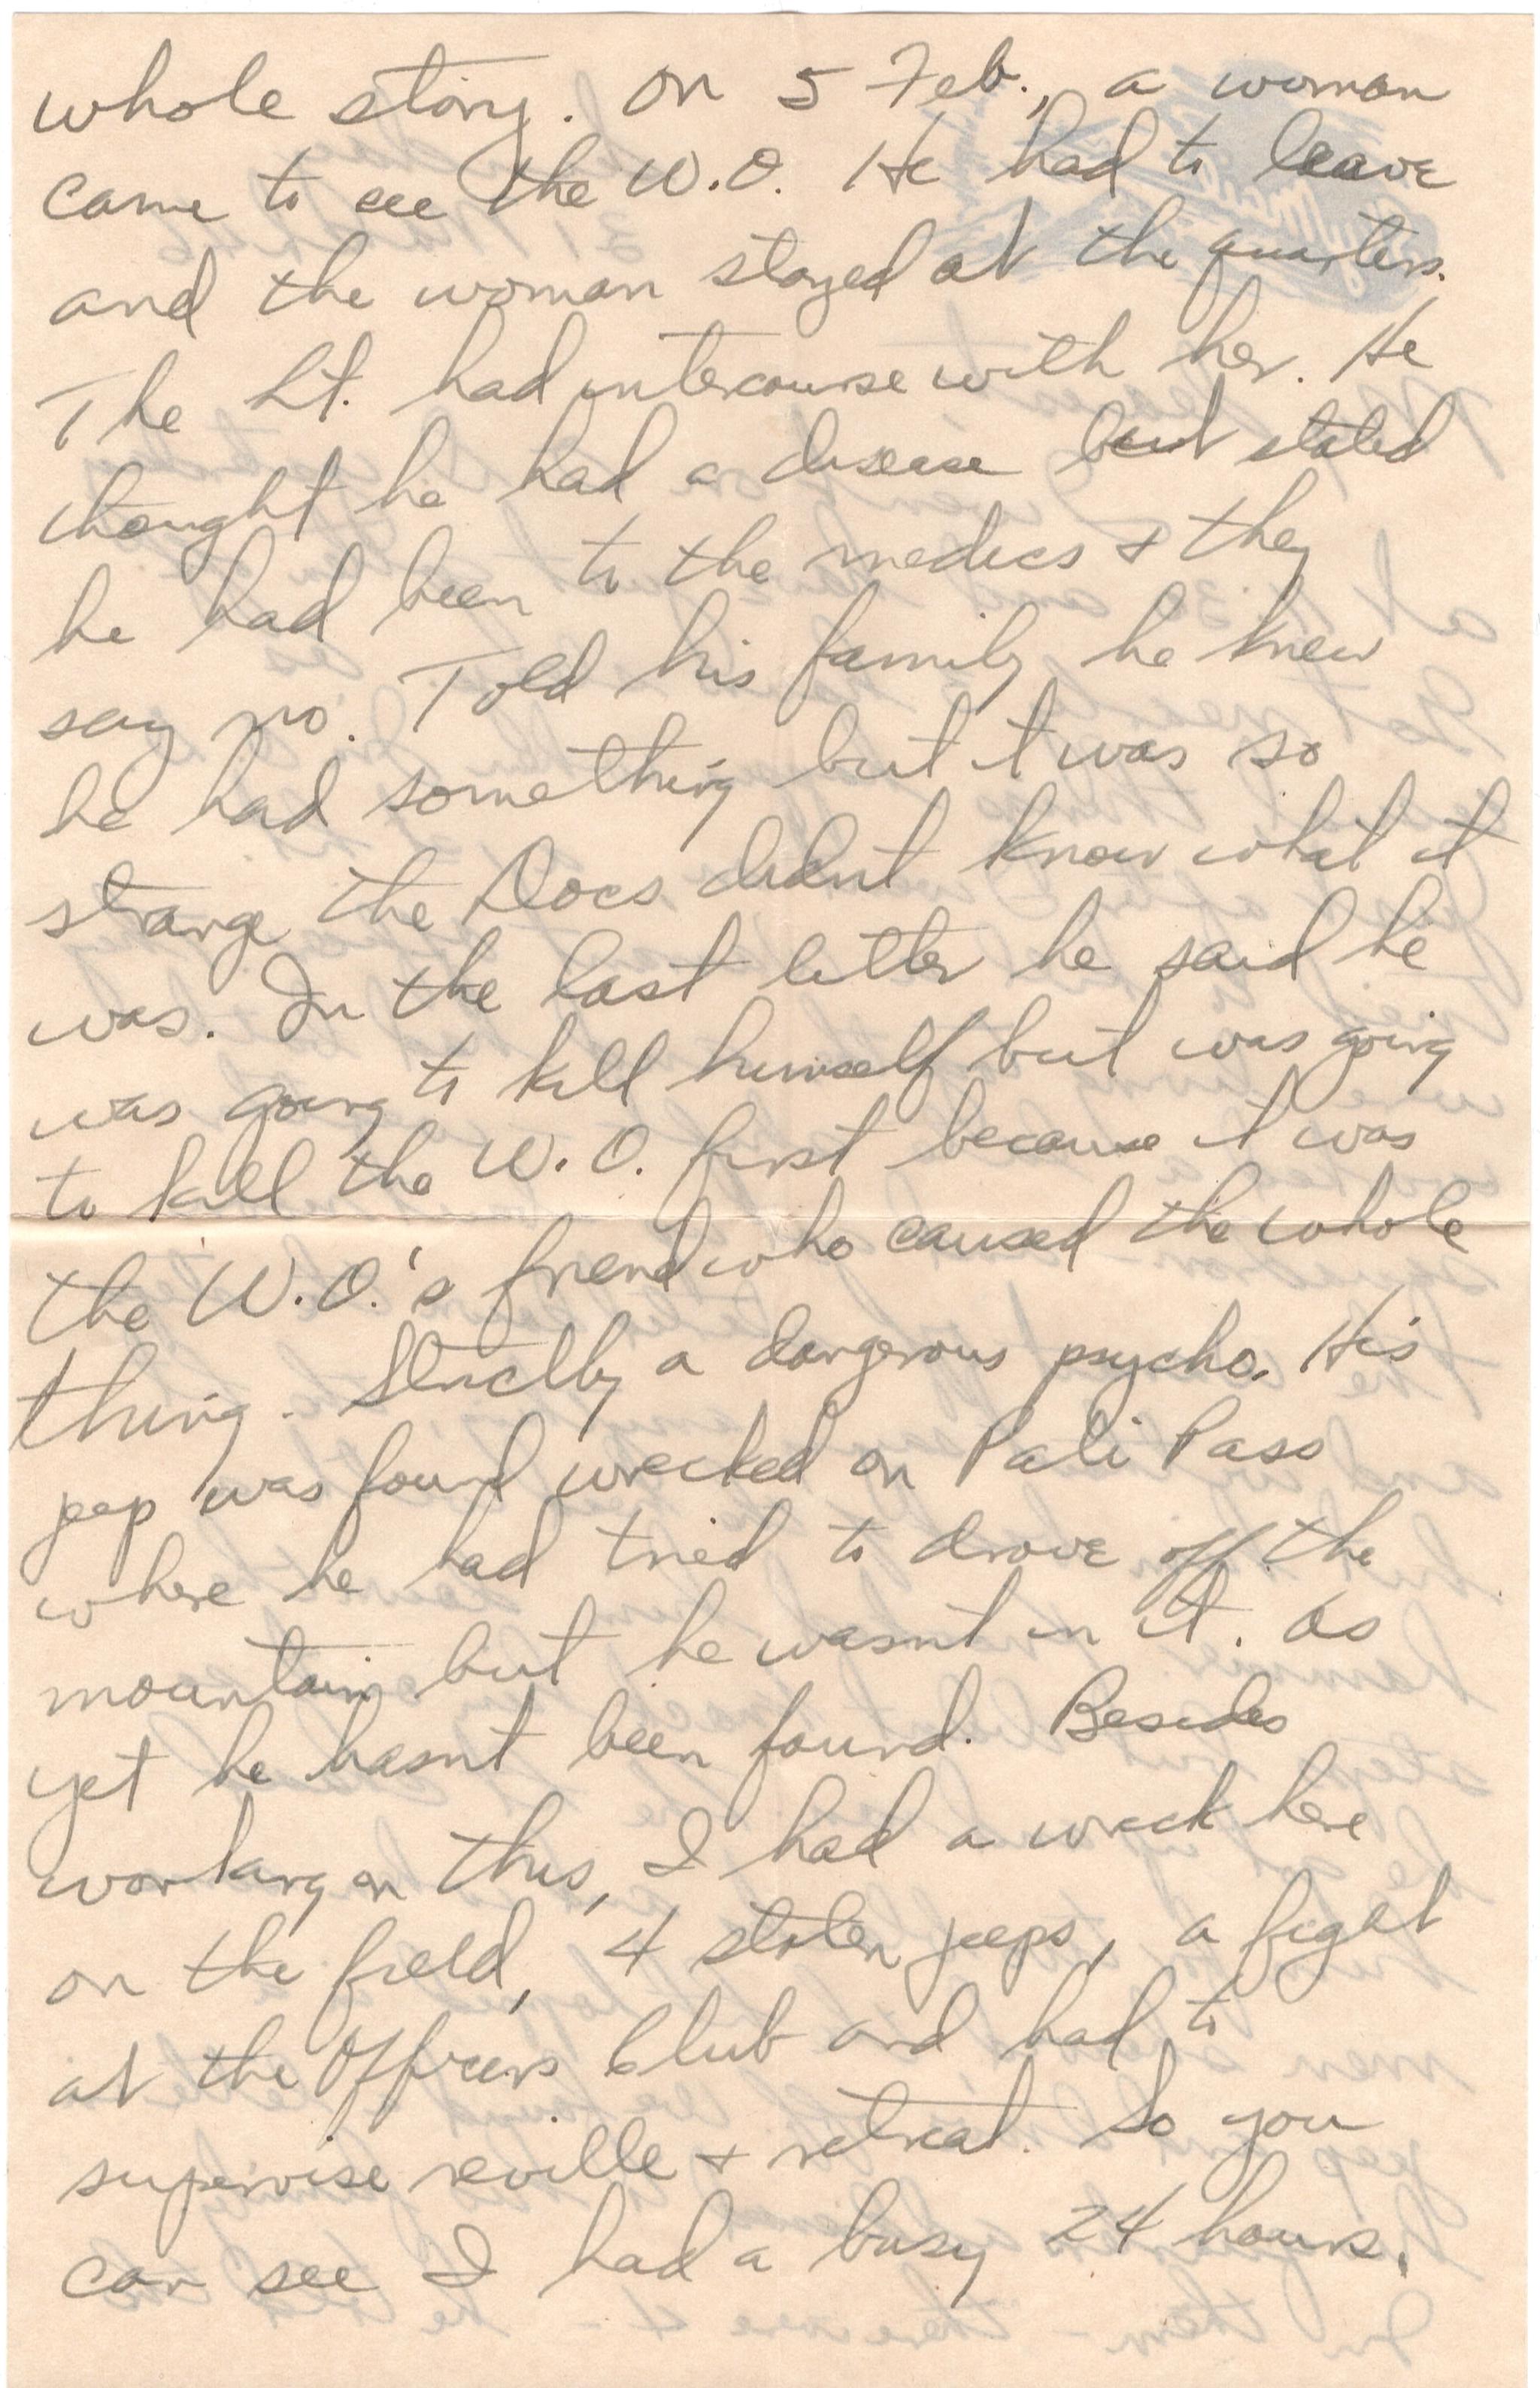 whole story. On 5 Feb., a woman
came to see the W.O. He had to leave
and the woman stayed at the quarters.
The Lt. had intercourse with her. He
thought he had a disease but stated
he had been to the medics & they
say no. Told his family he knew
he had something but it was so
strange the Docs didnt know what it
was. In the last letter he said he
was going to kill himself but was going
to kill the W.O. first because it was
the W.O.'s friend who caused the whole
thing. Strictly a dangerous psycho. His
jeep was found wrecked on Pali Pass
where he had tried to drove off the
mountain but he wasnt in it. As
yet he hasnt been found. Besides
working on this, I had a wreck here
on the field, 4 stolen jeeps, a fight
at the Officers Club and had to
supervise reville & retreat. So you
can see I had a busy 24 hours.